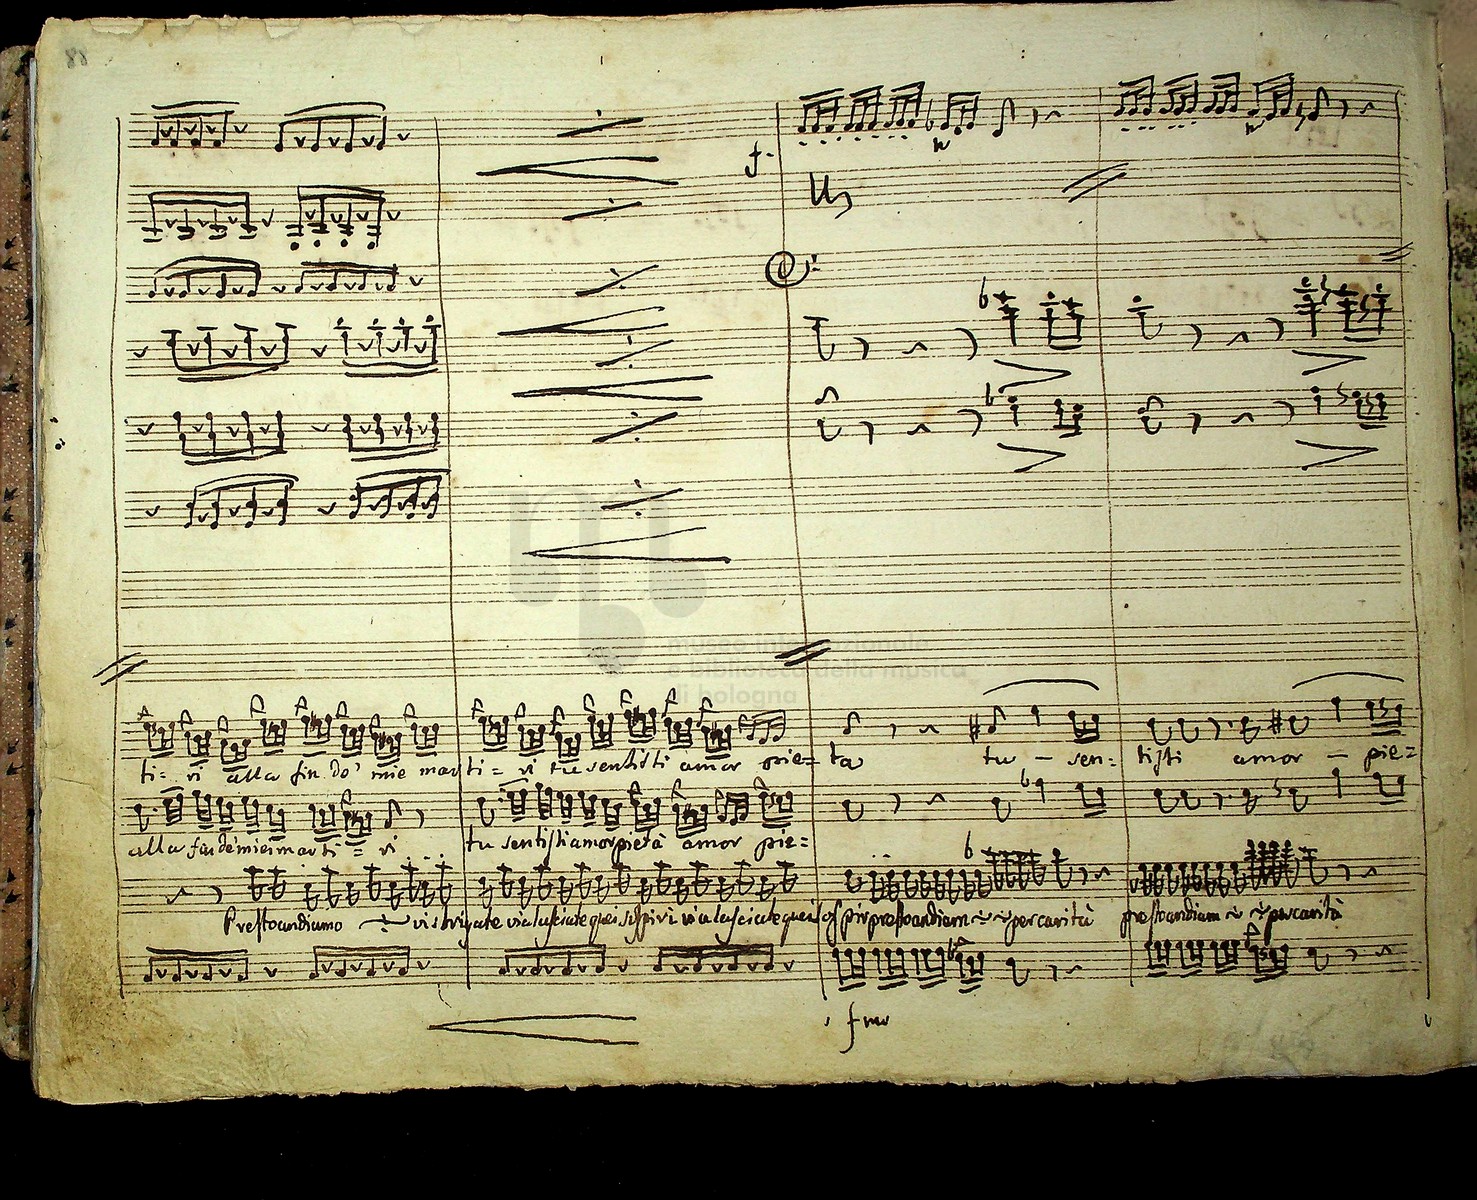 88
f.
museo internazionale
e biblioteca della musica
di bologna
ti = ri alla fin do' mie mar ti = ri tu sentisti amor pie = ta tu - sen = tisti amor - pie =
alla fin de miei marti = ri tu sentisti amor pietà amor pie =
Presto andiamo vi sbrigate via lasciate quei sospiri via lasciate quei sospir presto andiam per carità presto andiam per carità
fmo